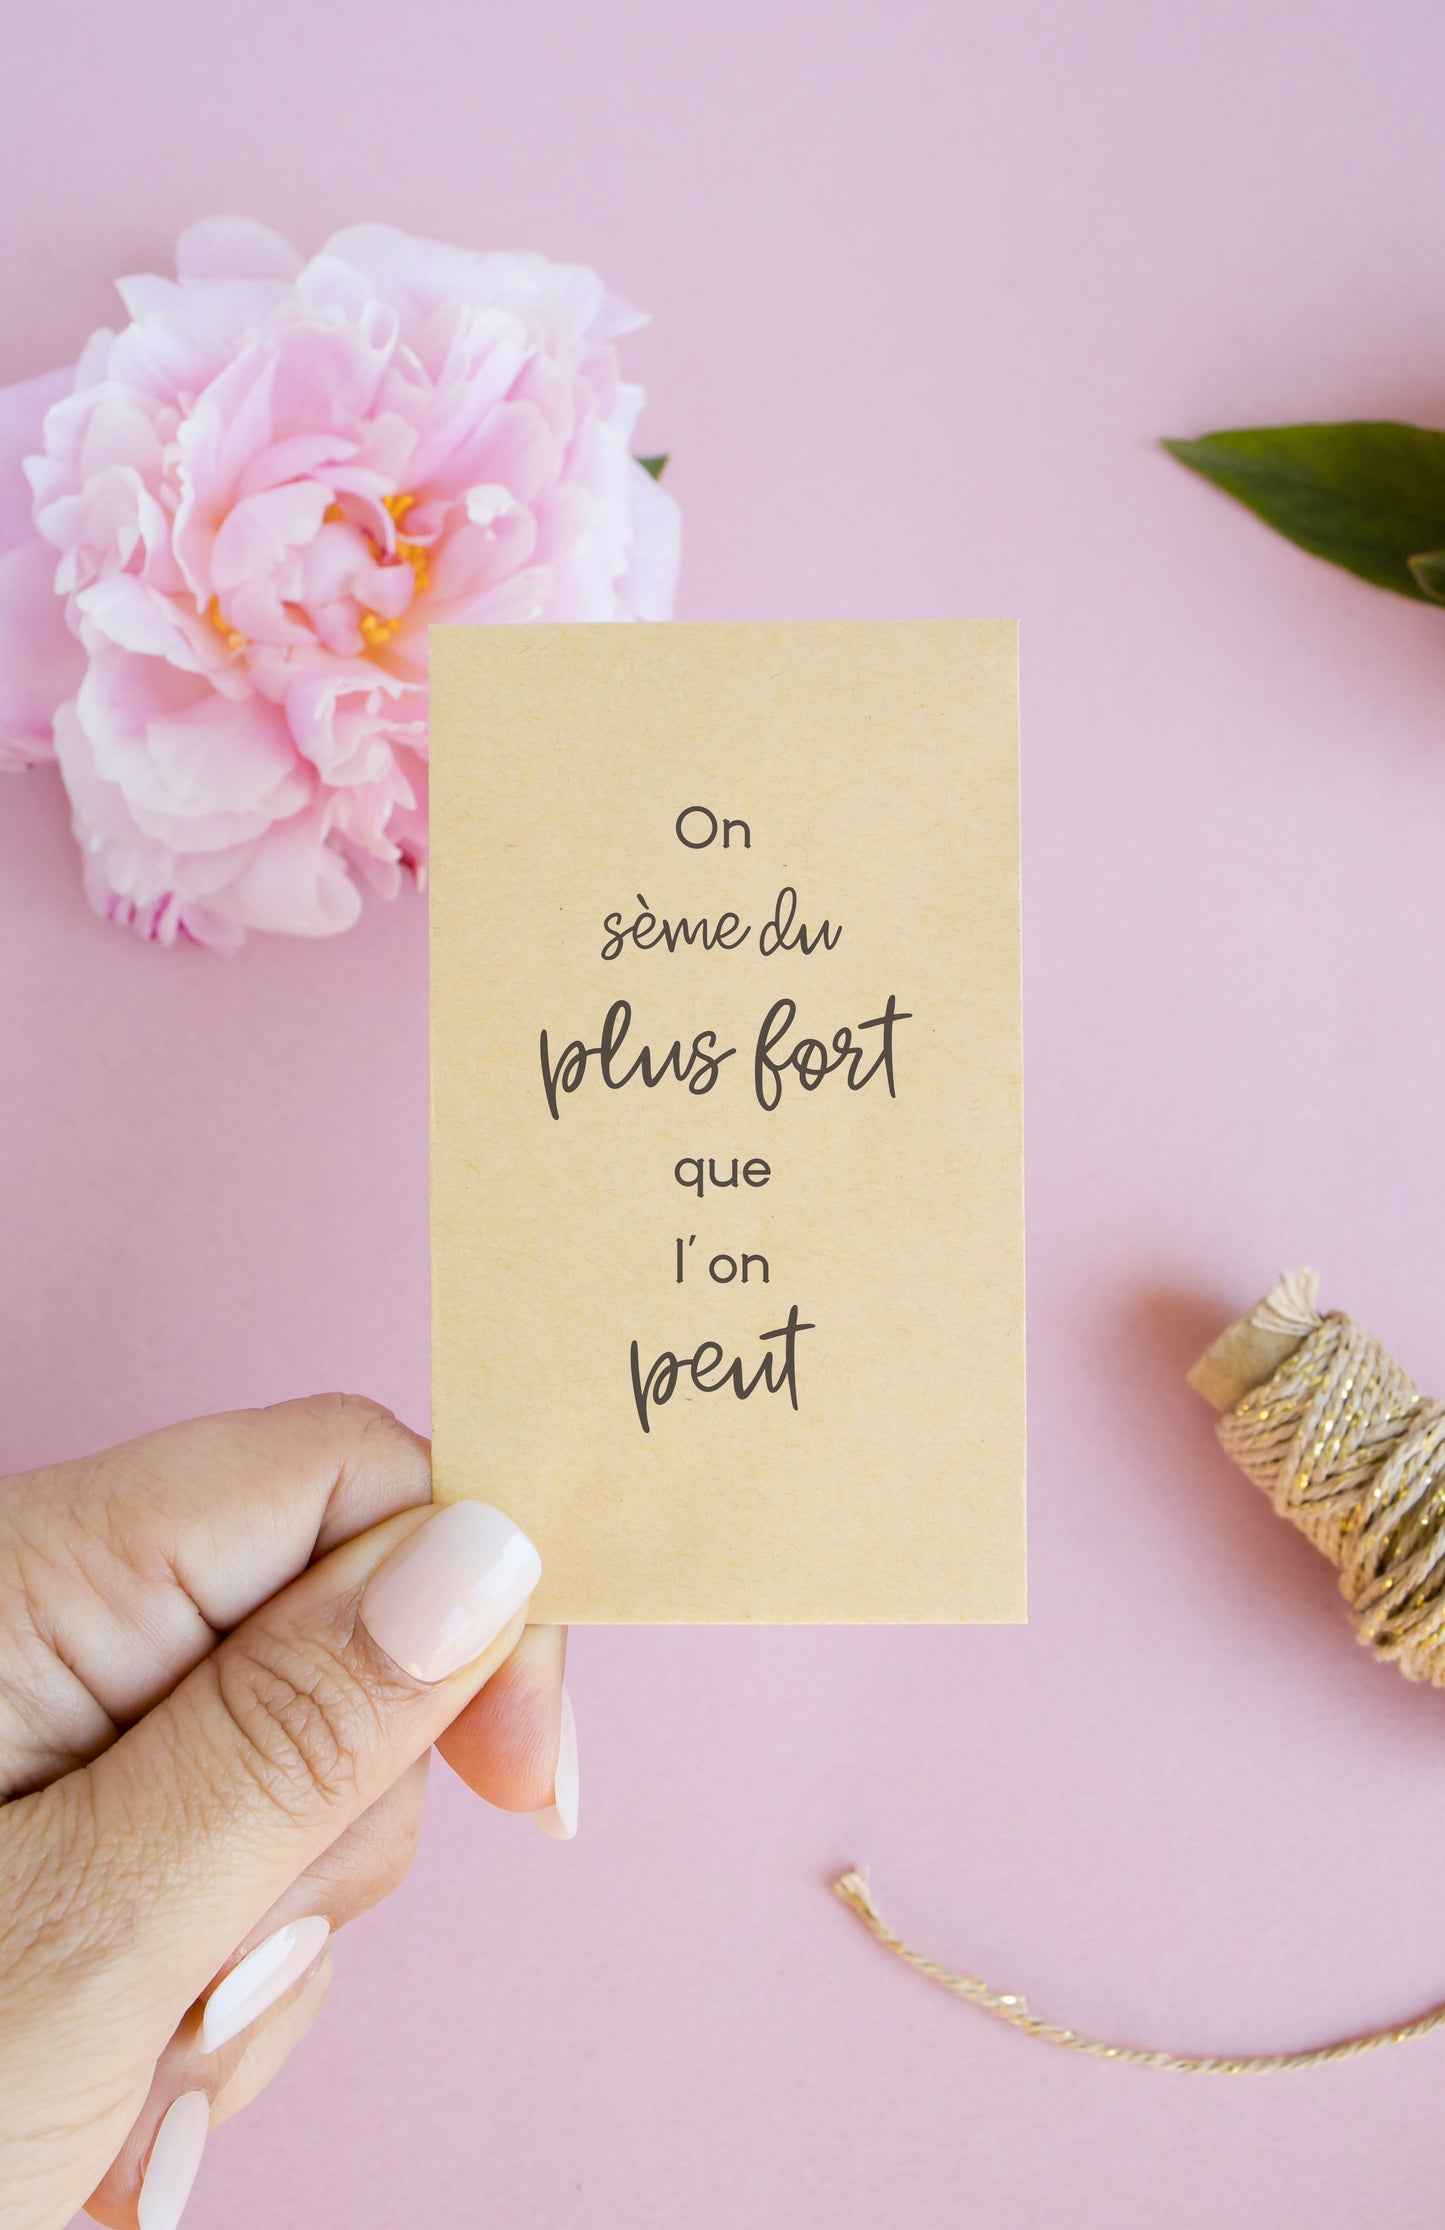 On
sème du
plus fort
que
l'on
peut